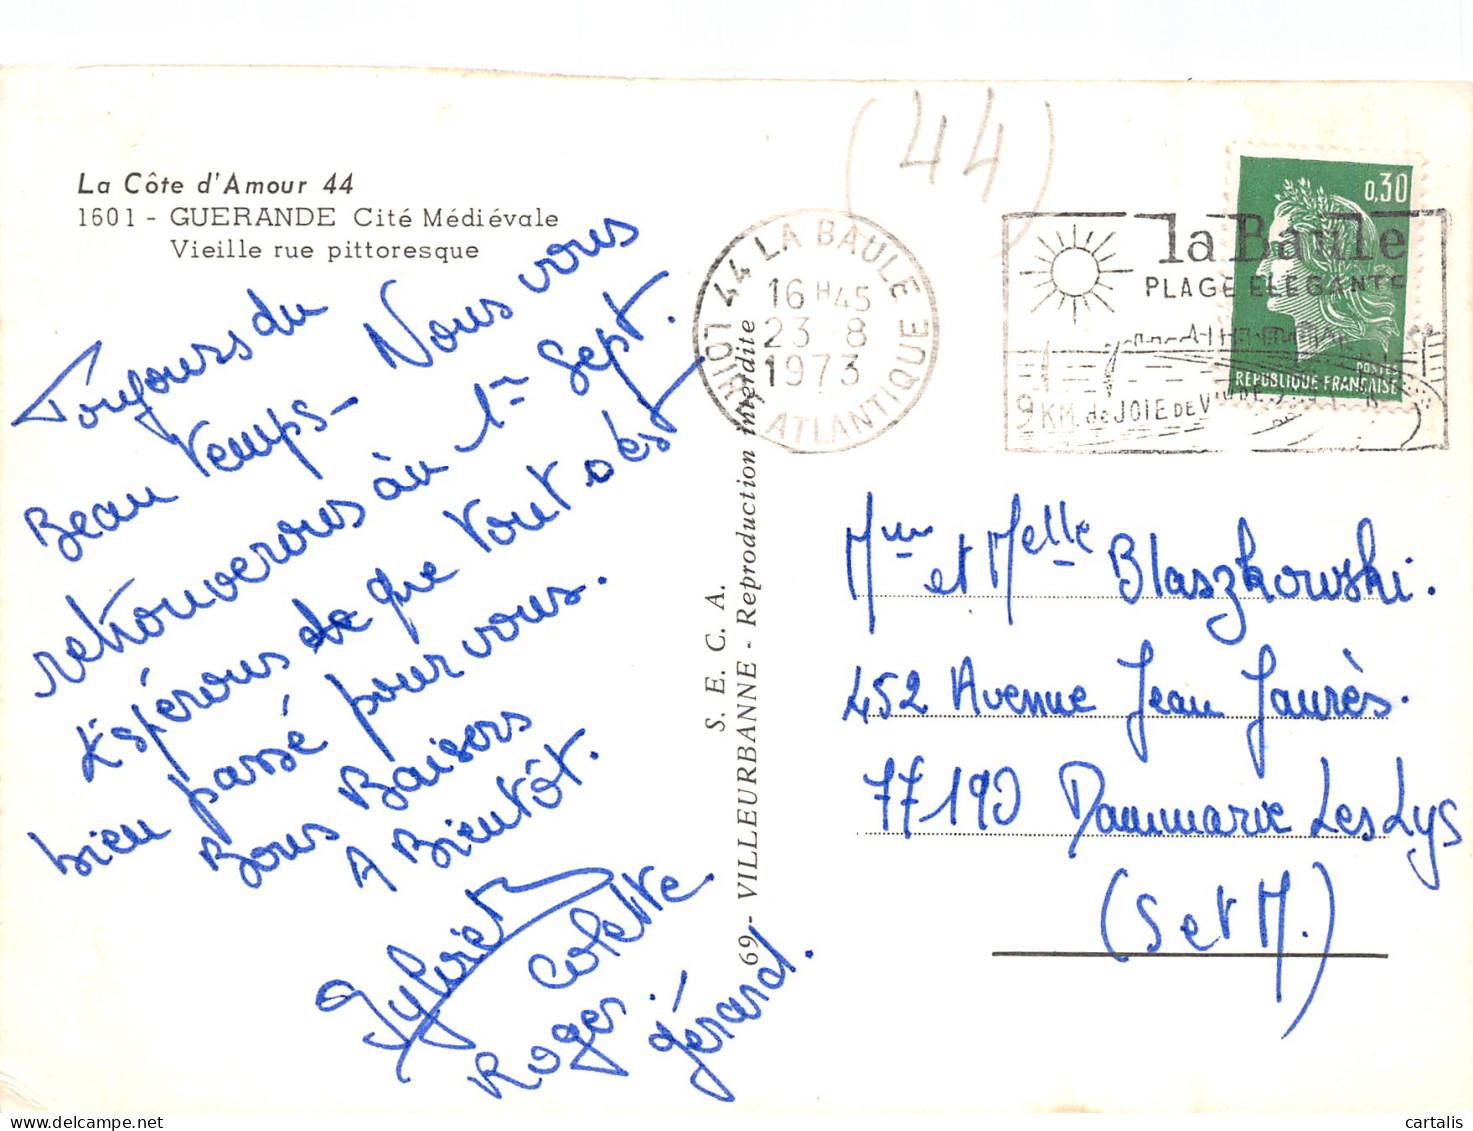 La Côte d'Amour 44
1601 - GUERANDE Cité Médiévale
Vieille rue pittoresque
Toujours du
Beau Temps - Nous vous
retrouverons au 1er Sept.
Espérons que tout s'est
bien passé pour vous.
Bons Baisers
A Bientôt.
Sylvie
Colette
Roger.
Gérard.
S. E. C. A.
69 - VILLEURBANNE - Reproduction interdite
(44)
44 LA BAULE
LOIRE ATLANTIQUE
16 H 45
23 8
1973
la Baule
PLAGE ELEGANTE
9 KM. de JOIE DE VIVRE
0,30
POSTES
REPUBLIQUE FRANÇAISE
Mme et Melle Blaszkowski.
452 Avenue Jean Jaurès.
77190 Dammarie Les Lys
(S et M.)
cartalis